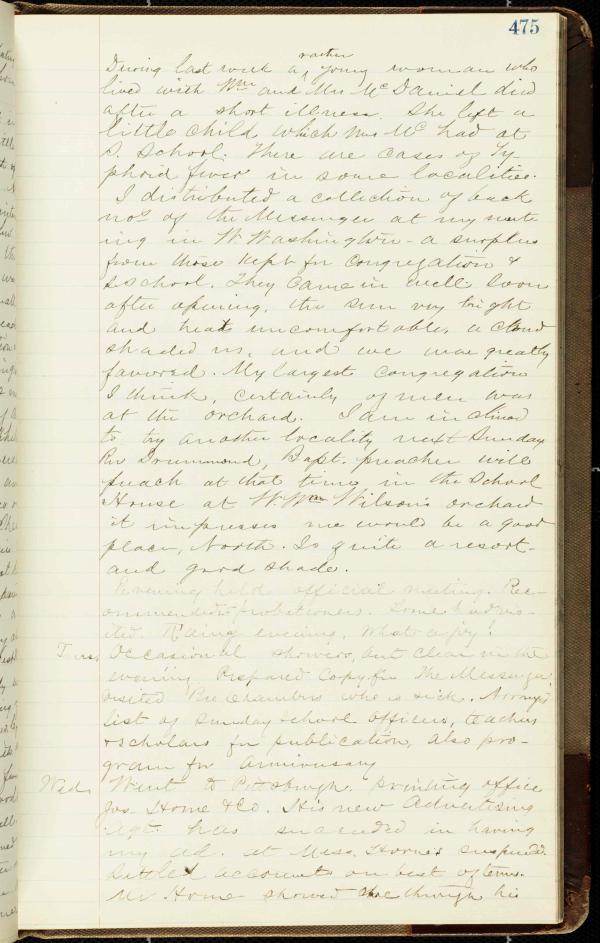 475
During last week a rather young woman who
lived with Wm and Mrs McDaniel died
after a short illness. She left a
little child which Mrs Mc had at
S. School. There are cases of Ty
phoid fever in some localities.
I distributed a collection of back
nos of the Messenger at my meet
ing in W. Washington - a surplus
from those kept for congregation &
S. school. They came in well. Soon
after opening, the sun very bright
and heat uncomfortable, a cloud
shaded us, and we were greatly
favored. My largest congregation
I think, certainly of men was
at the orchard. I am inclined
to try another locality next Sunday
Rev Drummond, Bapt. preacher will
preach at that time in the School
House at W. Wm Wilson's orchard
it impresses me would be a good
place, North. Is quite a resort
and good shade.
Evening held official meeting. Rec-
ommended probationers. Some had vis-
ited. Rainy evening. What a joy!
Tues. Occasional showers, but clear in the
evening. Prepared copy for The Messenger,
visited Bro Chambers who is sick. Arranged
list of Sunday school officers, teachers
& scholars for publication, also pro-
gram for anniversary
Wed. Went to Pittsburgh. printing office
Jos. Horne & Co. His new Advertising
agt. has succeeded in having
my ad. at Mess. Horne's suspended.
Settled accounts on best of terms.
Mr Horne showed me through his